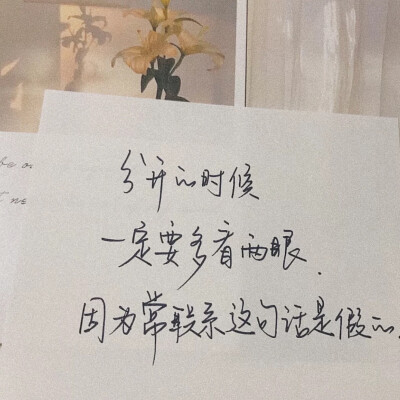 分开的时候
一定要多看两眼.
因为常联系这句话是假的.